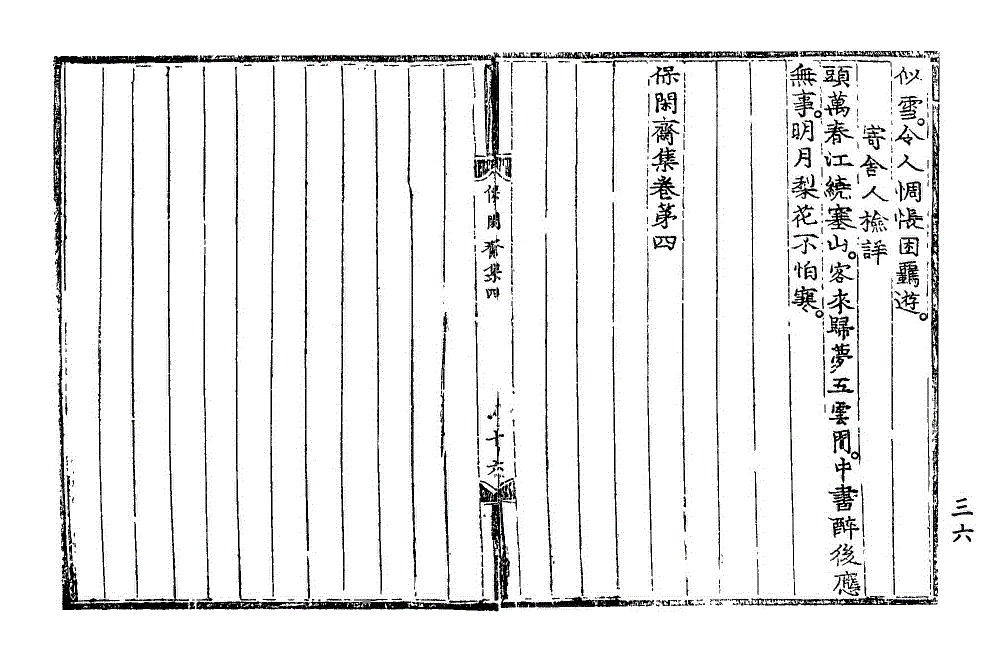 似雪。令人惆悵困羈遊。
寄舍人檢詳
頭萬春江繞塞山。客來歸夢五雲間。中書醉後應
無事。明月梨花不怕寒。
保閑齋集卷第四
保閑齋集四
十六
三六